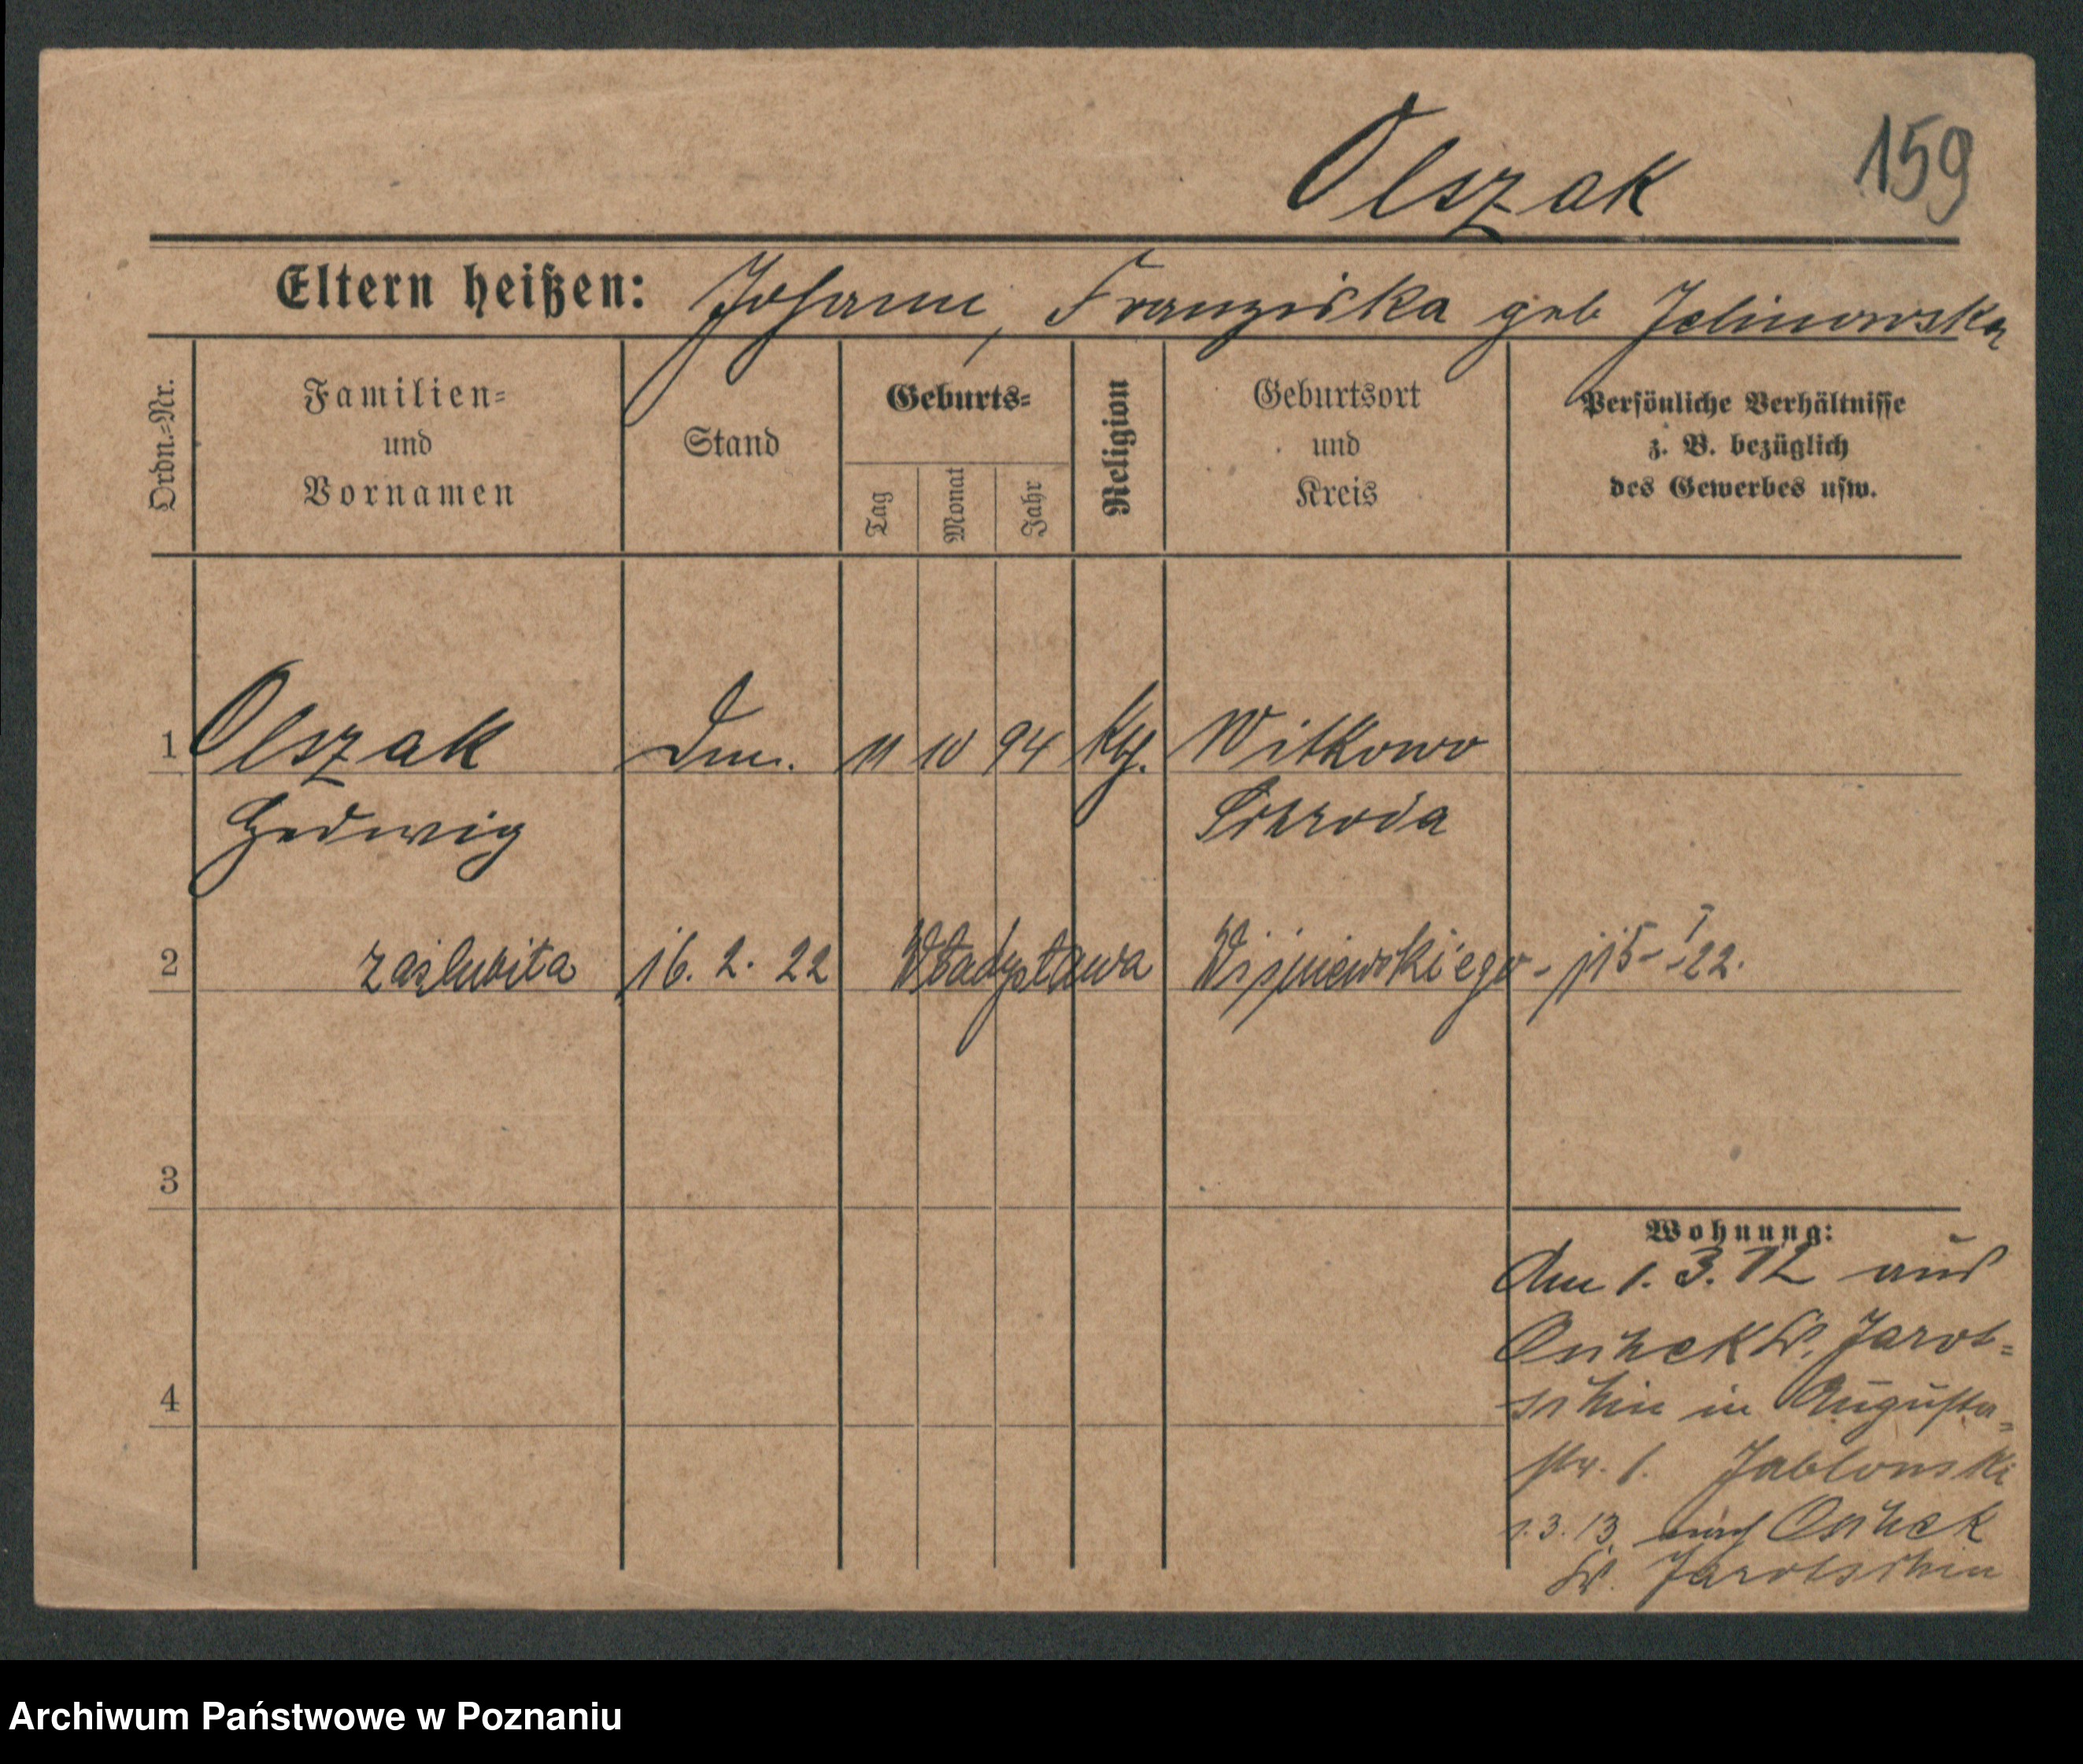 Olszak
159
Eltern heißen: Johann, Franziska geb Jelinowska
Ordn.-Nr.
Familien-
und
Vornamen
Stand
Geburts-
Tag
Monat
Jahr
Religion
Geburtsort
und
Kreis
Persönliche Verhältnisse
z. B. bezüglich
des Gewerbes usw.
1 Olszak 11 10 94 Kth. Witkowo
Hedwig Schroda
2 zaślubiła 16. 2. 22 Władysława Wiśniewskiego - p 15-I-22.
3
Wohnung:
Am 1. 3. 12 aus
Osiek Kr. Jarot-
4
schin in Augusta-
str. 1. Jablonski
1.3.13 nach
Kr. Jarotschin
Archiwum Państwowe w Poznaniu